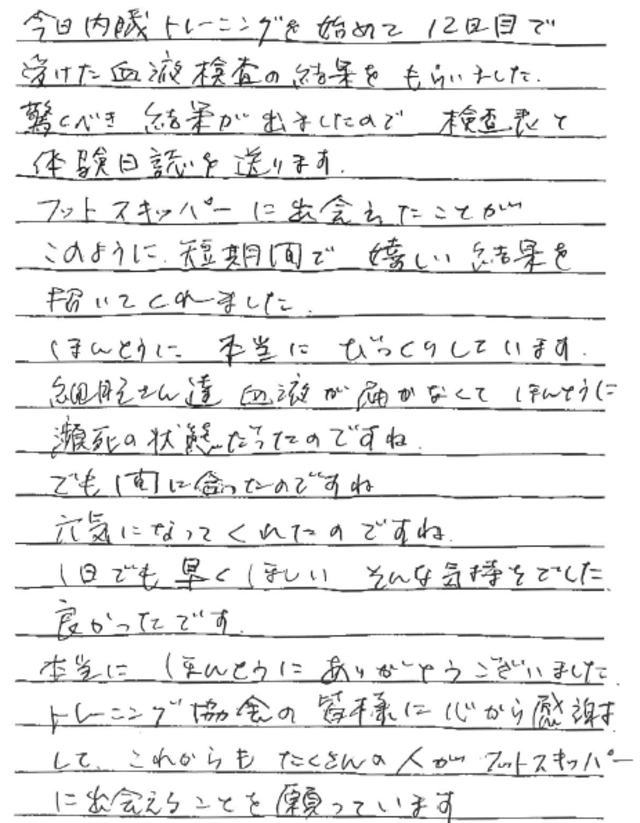 今日内臓トレーニングを始めて 12日目で
受けた血液検査の結果をもらいました.
驚くべき 結果が出ましたので 検査表と
体験日誌を送ります.
フットスキッパーに出会えたことが
このように.短期間で 嬉しい結果を
招いてくれました.
ほんとうに 本当に びっくりしています.
細胞さん達 血液が届かなくて ほんとうに
瀕死の状態だったのですね.
でも 間に合ったのですね
元気になってくれたのですね.
1日でも早くほしい そんな気持ちでした
良かったです.
本当に ほんとうに ありがとうございました.
トレーニング協会の皆様に心から感謝
して、これからもたくさんの人が フットスキッパー
に出会えることを願っています